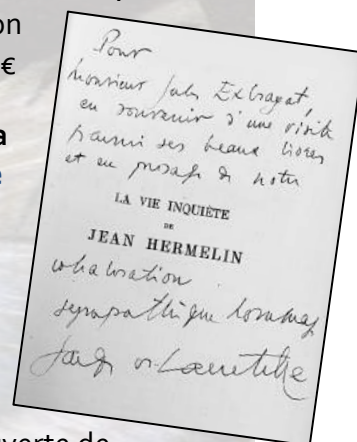 on
€
a
e
Pour
Monsieur Jules Exbrayat,
en souvenir d'une visite
parmi ses beaux livres
et en présage de notre
LA VIE INQUIÈTE
DE
JEAN HERMELIN
collaboration
sympathique hommage
Jacques de Lacretelle
uverte de